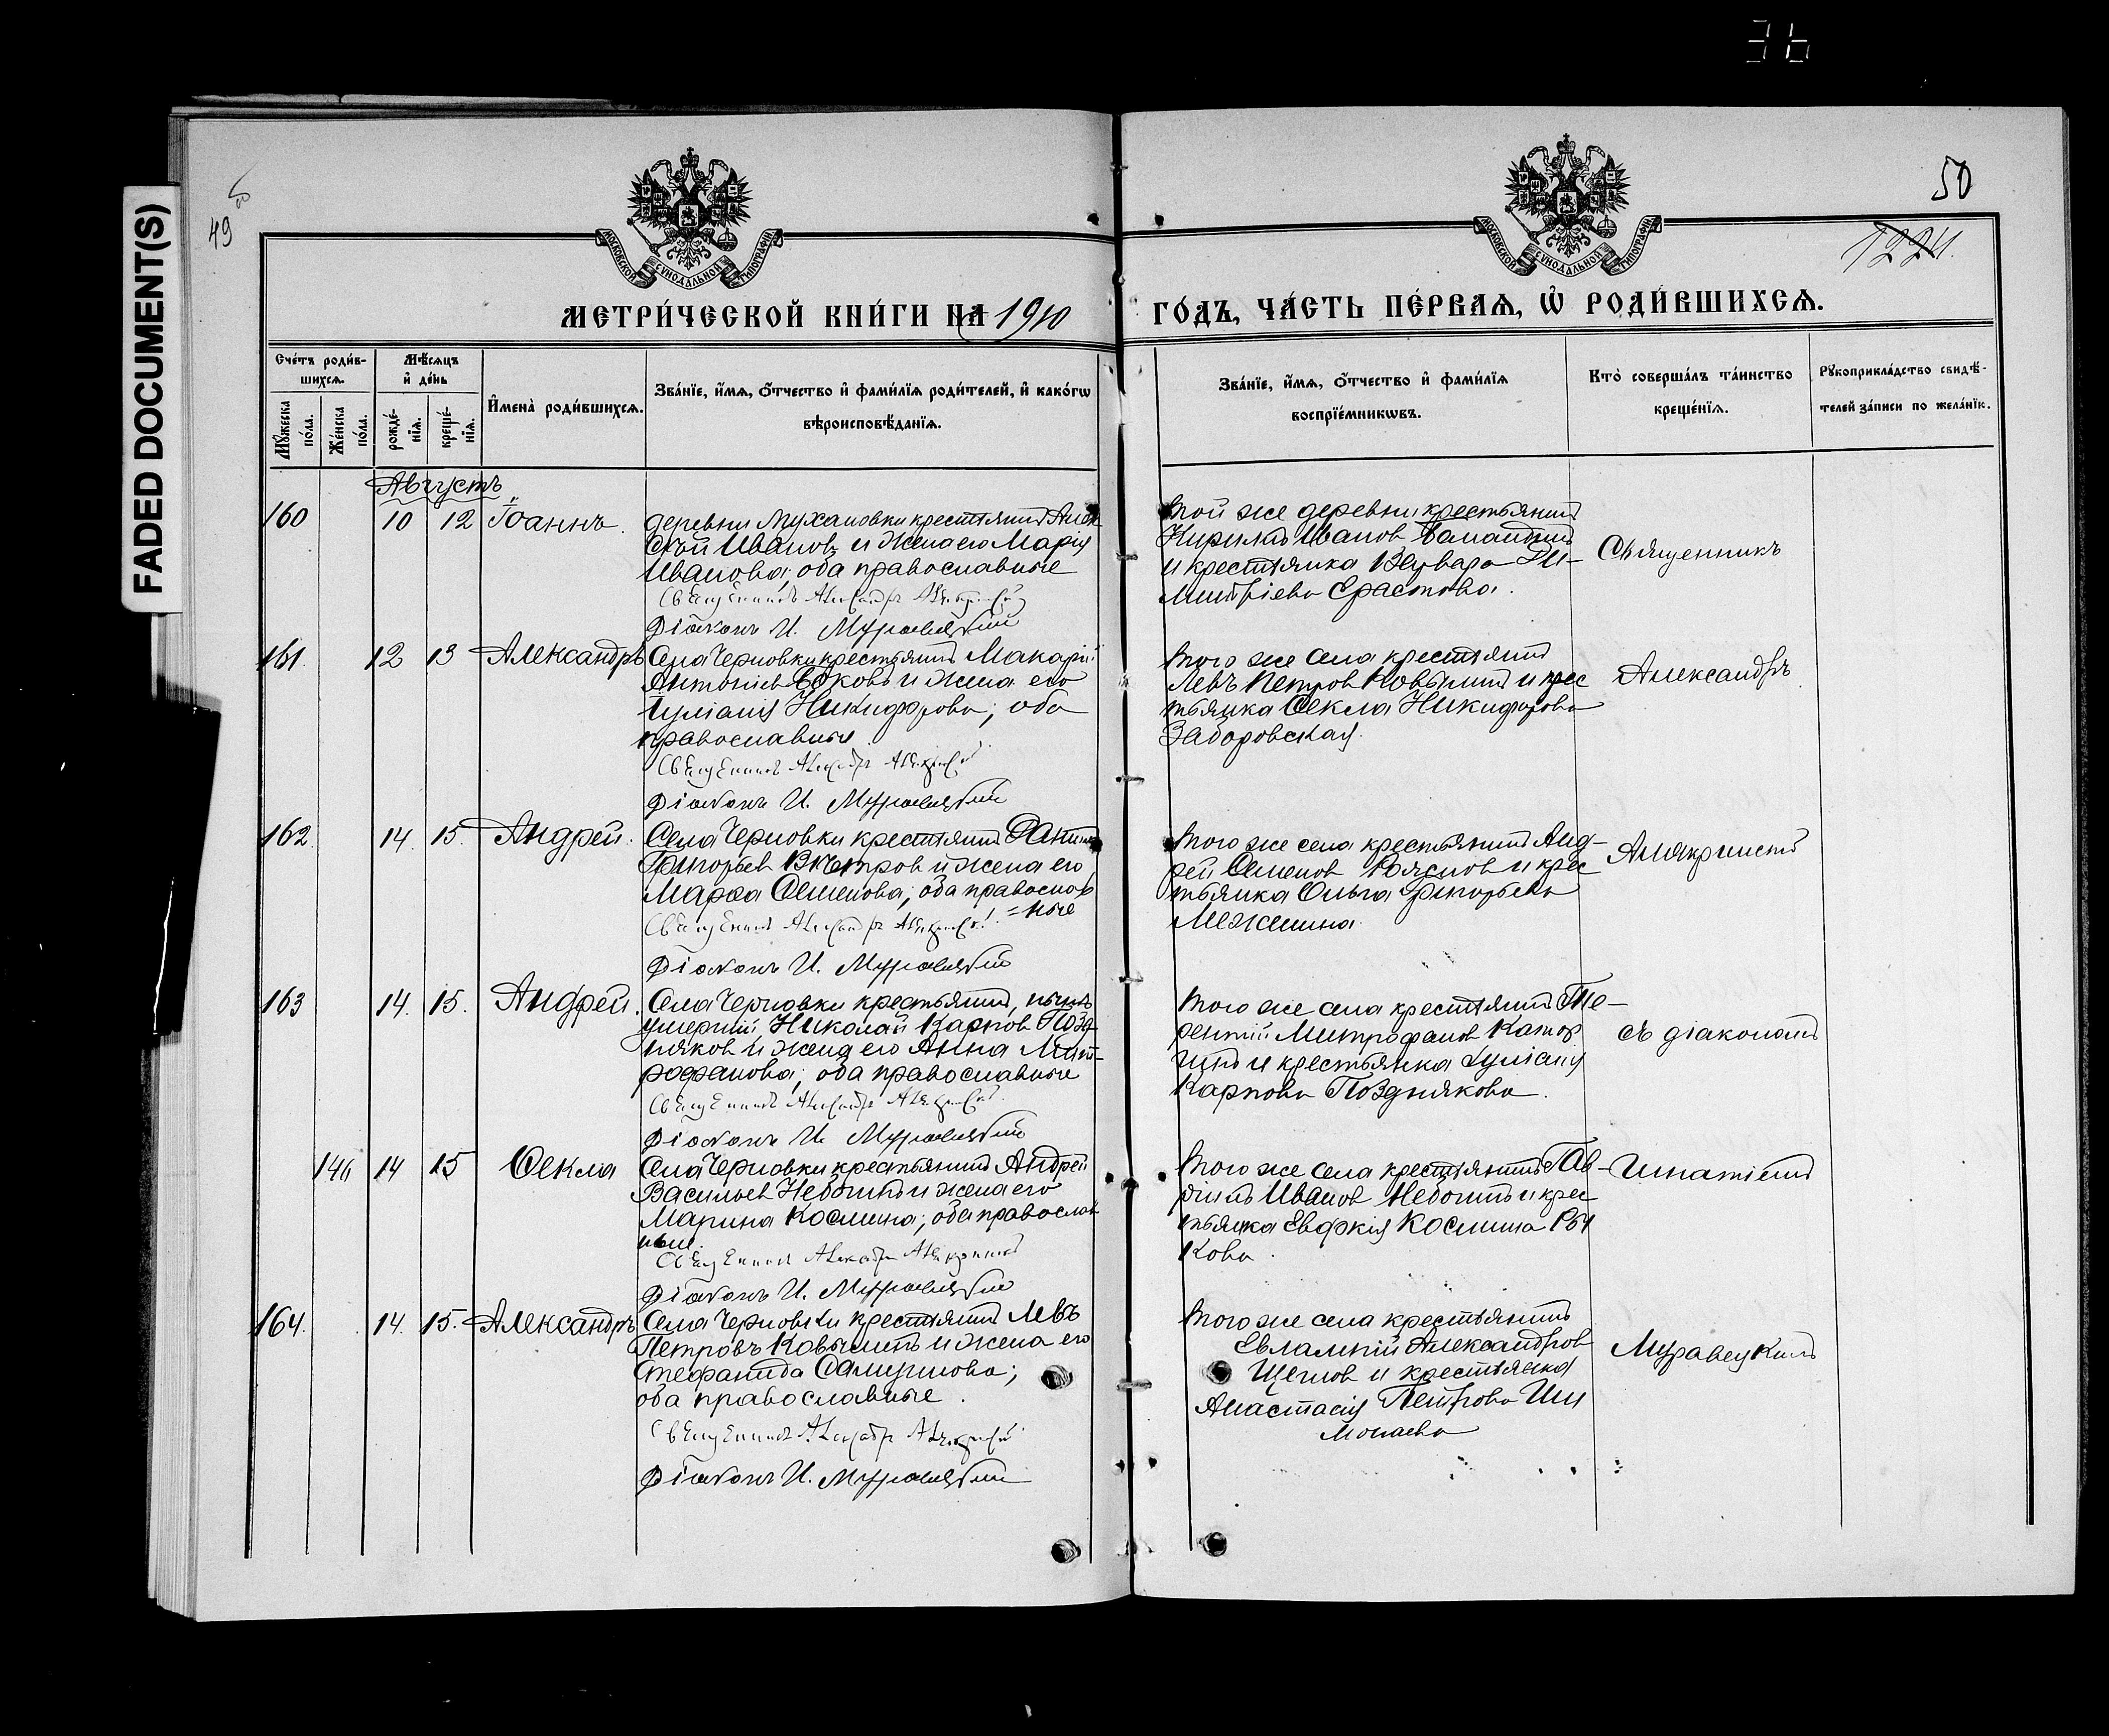 36
FADED DOCUMENT(S)
49
50
1224.
МОСКОВСКОЙ СѴНОДАЛЬНОЙ ТИПОГРАФІИ
МОСКОВСКОЙ СѴНОДАЛЬНОЙ ТИПОГРАФІИ
МЕТРИ́ЧЕСКОЙ КНИ́ГИ НА 1910
ГО́ДЪ, ЧА́СТЬ ПЕ́РВАѦ, Ѽ РОДИ́ВШИХСѦ.
Сче́тъ роди́в-
шихсѧ.
Мꙋ́жеска по́ла.
Же́нска по́ла.
Мѣ́сѧцъ
и҆ де́нь
рожде́-
нїѧ.
креще́-
нїѧ.
И҆мена̀ роди́вшихсѧ.
Зва́нїе, и҆́мѧ, ѻ҆́тчество и҆ фами́лїѧ роди́телей, и҆ како́гѡ
вѣроисповѣ́данїѧ.
Зва́нїе, и҆́мѧ, ѻ҆́тчество и҆ фами́лїѧ
воспрїе́мникѡвъ.
Кто̀ соверша́лъ та́инство
креще́нїѧ.
Рꙋкоприкла́дство свидѣ́-
телей за́писи по жела́нїю.
Августъ
160 10 12 Іоаннъ.
деревни Мухановки крестьянинъ Алек
сѣй Ивановъ и жена его Марія
Иванова; оба православные
Священникъ Александръ
Діаконъ И. Муравецкій
Той же деревни крестьянинъ
Кирилъ Иванов
и крестьянка Варвара Ди-
митріева Ерастова.
Священникъ
161. 12 13 Александръ
Села Черновки крестьянинъ Макарій
Антоніев и жена его
Іуліанія Никифорова; оба
православные
Священникъ Александръ
Діаконъ И. Муравецкій
Того же села крестьянинъ
Левъ Петров Ковылинъ и крес
тьянка Ѳекла Никифорова
Задоровская.
Александръ
162. 14. 15. Андрей.
Села Черновки крестьянинъ
Григорьев и жена его
Марѳа Семенова; оба православ
=ные
Священникъ Александръ
Діаконъ И. Муравецкій
Того же села крестьянинъ Анд-
рей Семенов и крес
тьянка Ольга Григорьева
163 14. 15. Андрей.
Села Черновки крестьянинъ, нынѣ
умершій, Николай Карпов Позд-
няков и жена его Анна Мит-
рофанова; оба православные
Священникъ Александръ
Діаконъ И. Муравецкій
Того же села крестьянинъ Те-
рентій Митрофанов
и крестьянка Іуліанія
Карпова Позднякова.
съ діакономъ
146 14 15 Ѳекла
Села Черновки крестьянинъ Андрей
Васильев и жена его
Марина Космина; оба православ
ные.
Священникъ Александръ
Діаконъ И. Муравецкій
Того же села крестьянинъ Гав-
ріилъ Иванов и крес
тьянка Евфкія Космина Ры
кова.
Игнатіемъ
164. 14. 15. Александръ
Села Черновки крестьянинъ Левъ
Петровъ Ковылинъ и жена его
Стефанида Самуилова;
оба православные.
Священникъ Александръ
Діаконъ И. Муравецкій
Того же села крестьянинъ
Евлампій Александров
Щеглов и крестьянка
Анастасія Петрова
Муравецкимъ